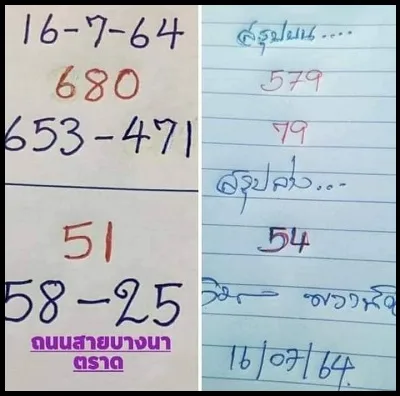 16-7-64
680
653-471
51
58-25
ถนนสายบางนา
ตราด
สรุปบน....
579
79
สรุปล่าง...
54
16/07/64